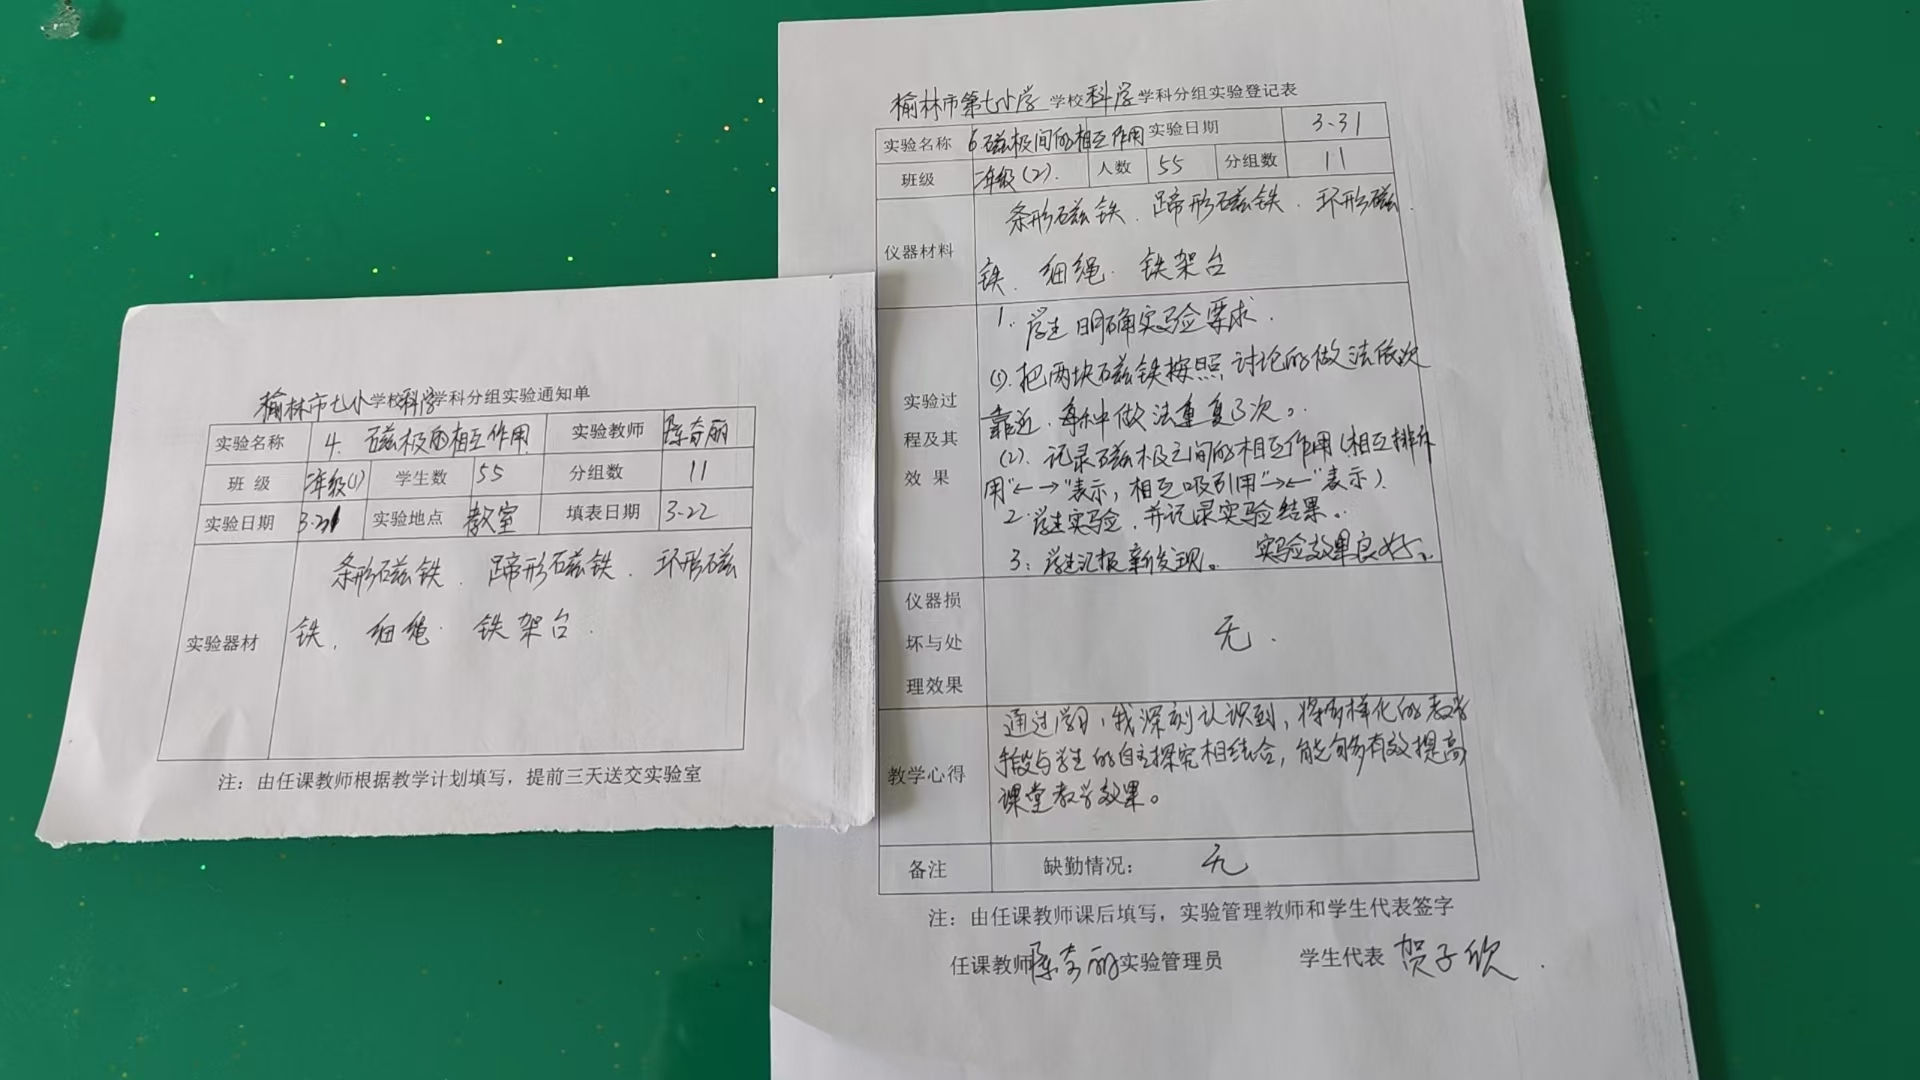 榆林市七小学校科学学科分组实验通知单
实验名称 4. 磁极的相互作用 实验教师
班 级 二年级(1) 学生数 55 分组数 11
实验日期 实验地点 教室 填表日期 3-22
条形磁铁. 蹄形磁铁. 环形磁
实验器材 铁. 细绳. 铁架台.
注：由任课教师根据教学计划填写，提前三天送交实验室
榆林市第七小学 学校科学学科分组实验登记表
实验名称 6磁极间的相互作用 实验日期 3-31
班级 二年级(2). 人数 55 分组数 11
条形磁铁. 蹄形磁铁. 环形磁
仪器材料
铁. 细绳. 铁架台
1. 学生明确实验要求.
(1). 把两块磁铁按照讨论的做法依次
靠近. 每种做法重复3次。
(2). 记录磁极之间的相互作用(相互排斥
用“←→”表示, 相互吸引用“→←”表示).
2. 学生实验, 并记录实验结果。
3. 学生汇报新发现。 实验效果良好。
实验过
程及其
效 果
仪器损
坏与处
理效果
无.
通过学习, 我深刻认识到, 将多样化的教学
手段与学生的自主探究相结合, 能够有效提高
课堂教学效果。
教学心得
备注 缺勤情况： 无
注：由任课教师课后填写，实验管理教师和学生代表签字
任课教师 实验管理员 学生代表 贺子欣.